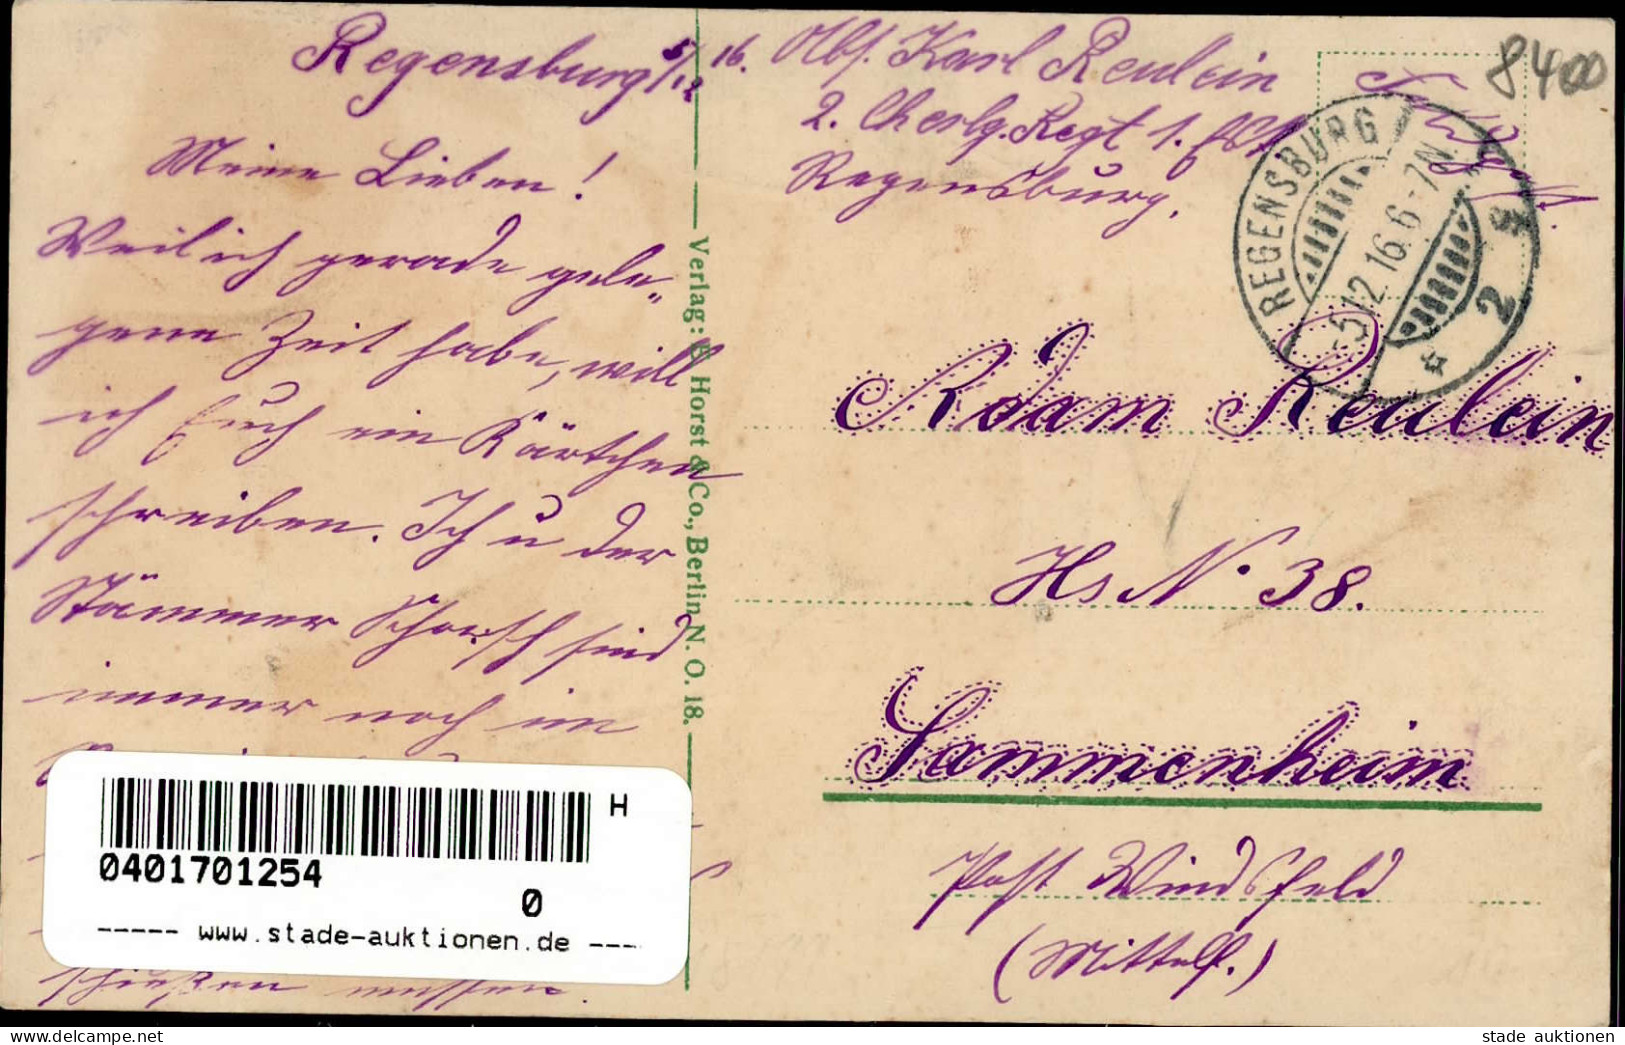 Regensburg 5/12 16.
Meine Lieben!
Weil ich gerade gele„
gene Zeit habe, will
ich Euch ein Kärtchen
schreiben. Ich u der
Stämmer Schorsch sind
immer noch im
schießen müssen.
Verlag: E Horst & Co., Berlin N. O. 18.
Karl Reulein
2. Regt 1.
Regensburg.
8400
REGENSBURG 2
-5.12.16. 6-7N.
Adam Reulein
Hs N. 38.
Sammenheim
Post Windsfeld
(Mittelf.)
H
0401701254
0
----- www.stade-auktionen.de ----
www.delcampe.net
stade auktionen